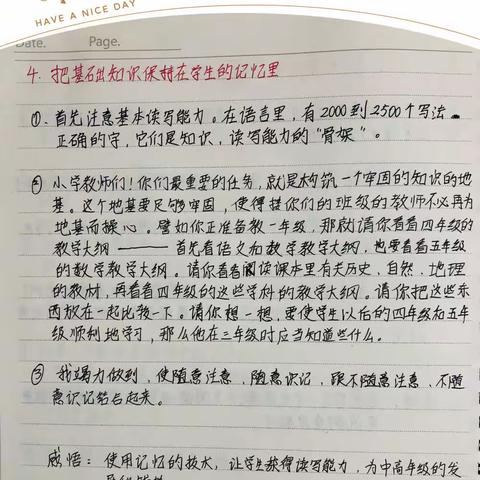 HAVE A NICE DAY
Date. Page.
4. 把基础知识保持在学生的记忆里
①. 首先注意基本读写能力。在语言里，有2000到2500个写法
正确的字，它们是知识，读写能力的“骨架”。
② 小学教师们！你们最重要的任务，就是构筑一个牢固的知识的地
基。这个地基要足够牢固，使得接你们的班级的教师不必再为
地基而操心。譬如你正准备教一年级，那就请你看看四年级的
教学大纲——首先看语文和数学教学大纲，也要看看五年级
的数学教学大纲。请你看看阅读课本里有关历史，自然，地理
的教材，再看看四年级的这些学科的教学大纲。请你把这些东
西放在一起比较一下。请你想一想，要使学生以后的四年级和五年
级顺利地学习，那么他在三年级时应当知道些什么。
③ 我竭力做到，使随意注意，随意识记，跟不随意注意，不随
意识记结合起来。
感悟：使用记忆的技术，让学生获得读写能力，为中高年级的发